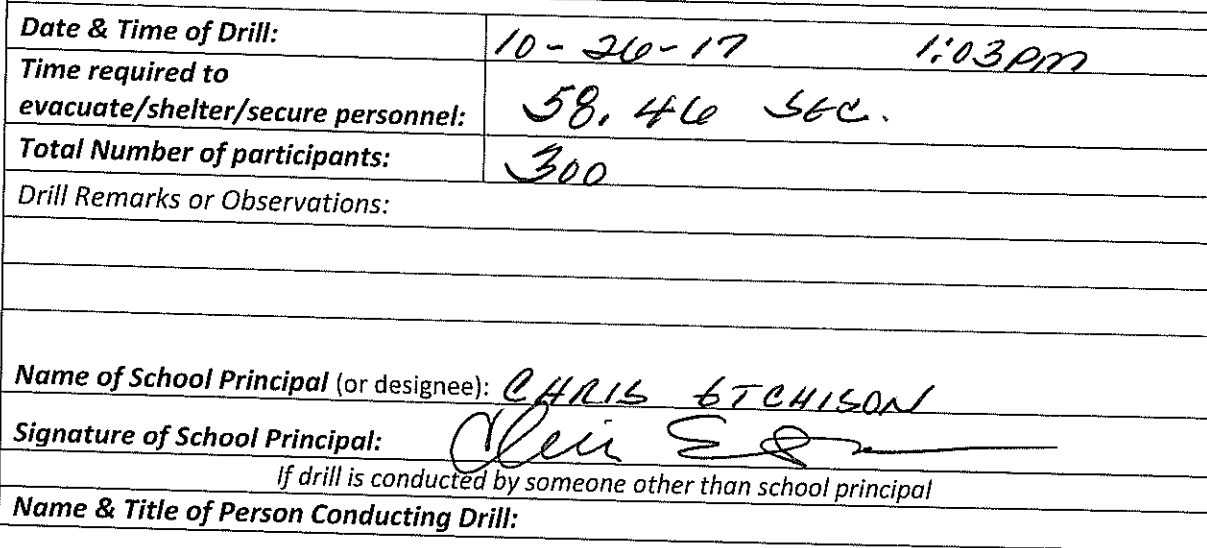 Date & Time of Drill: 10-26-17 1:03pm
Time required to
evacuate/shelter/secure personnel: 58.46 SEC.
Total Number of participants: 300
Drill Remarks or Observations:
Name of School Principal (or designee): CHRIS ETCHISON
Signature of School Principal:
If drill is conducted by someone other than school principal
Name & Title of Person Conducting Drill: